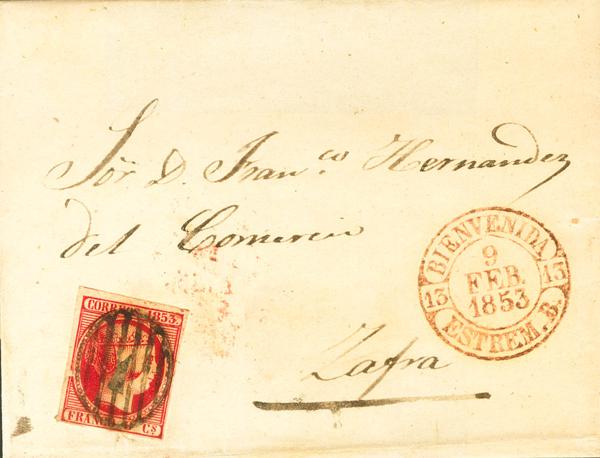 Sör D. Fran.co Hernandez
del Comercio
Zafra
BIENVENIDA
9
FEB.
1853
13 13
ESTREM. B.
CORREOS 1853.
FRANCO Cs